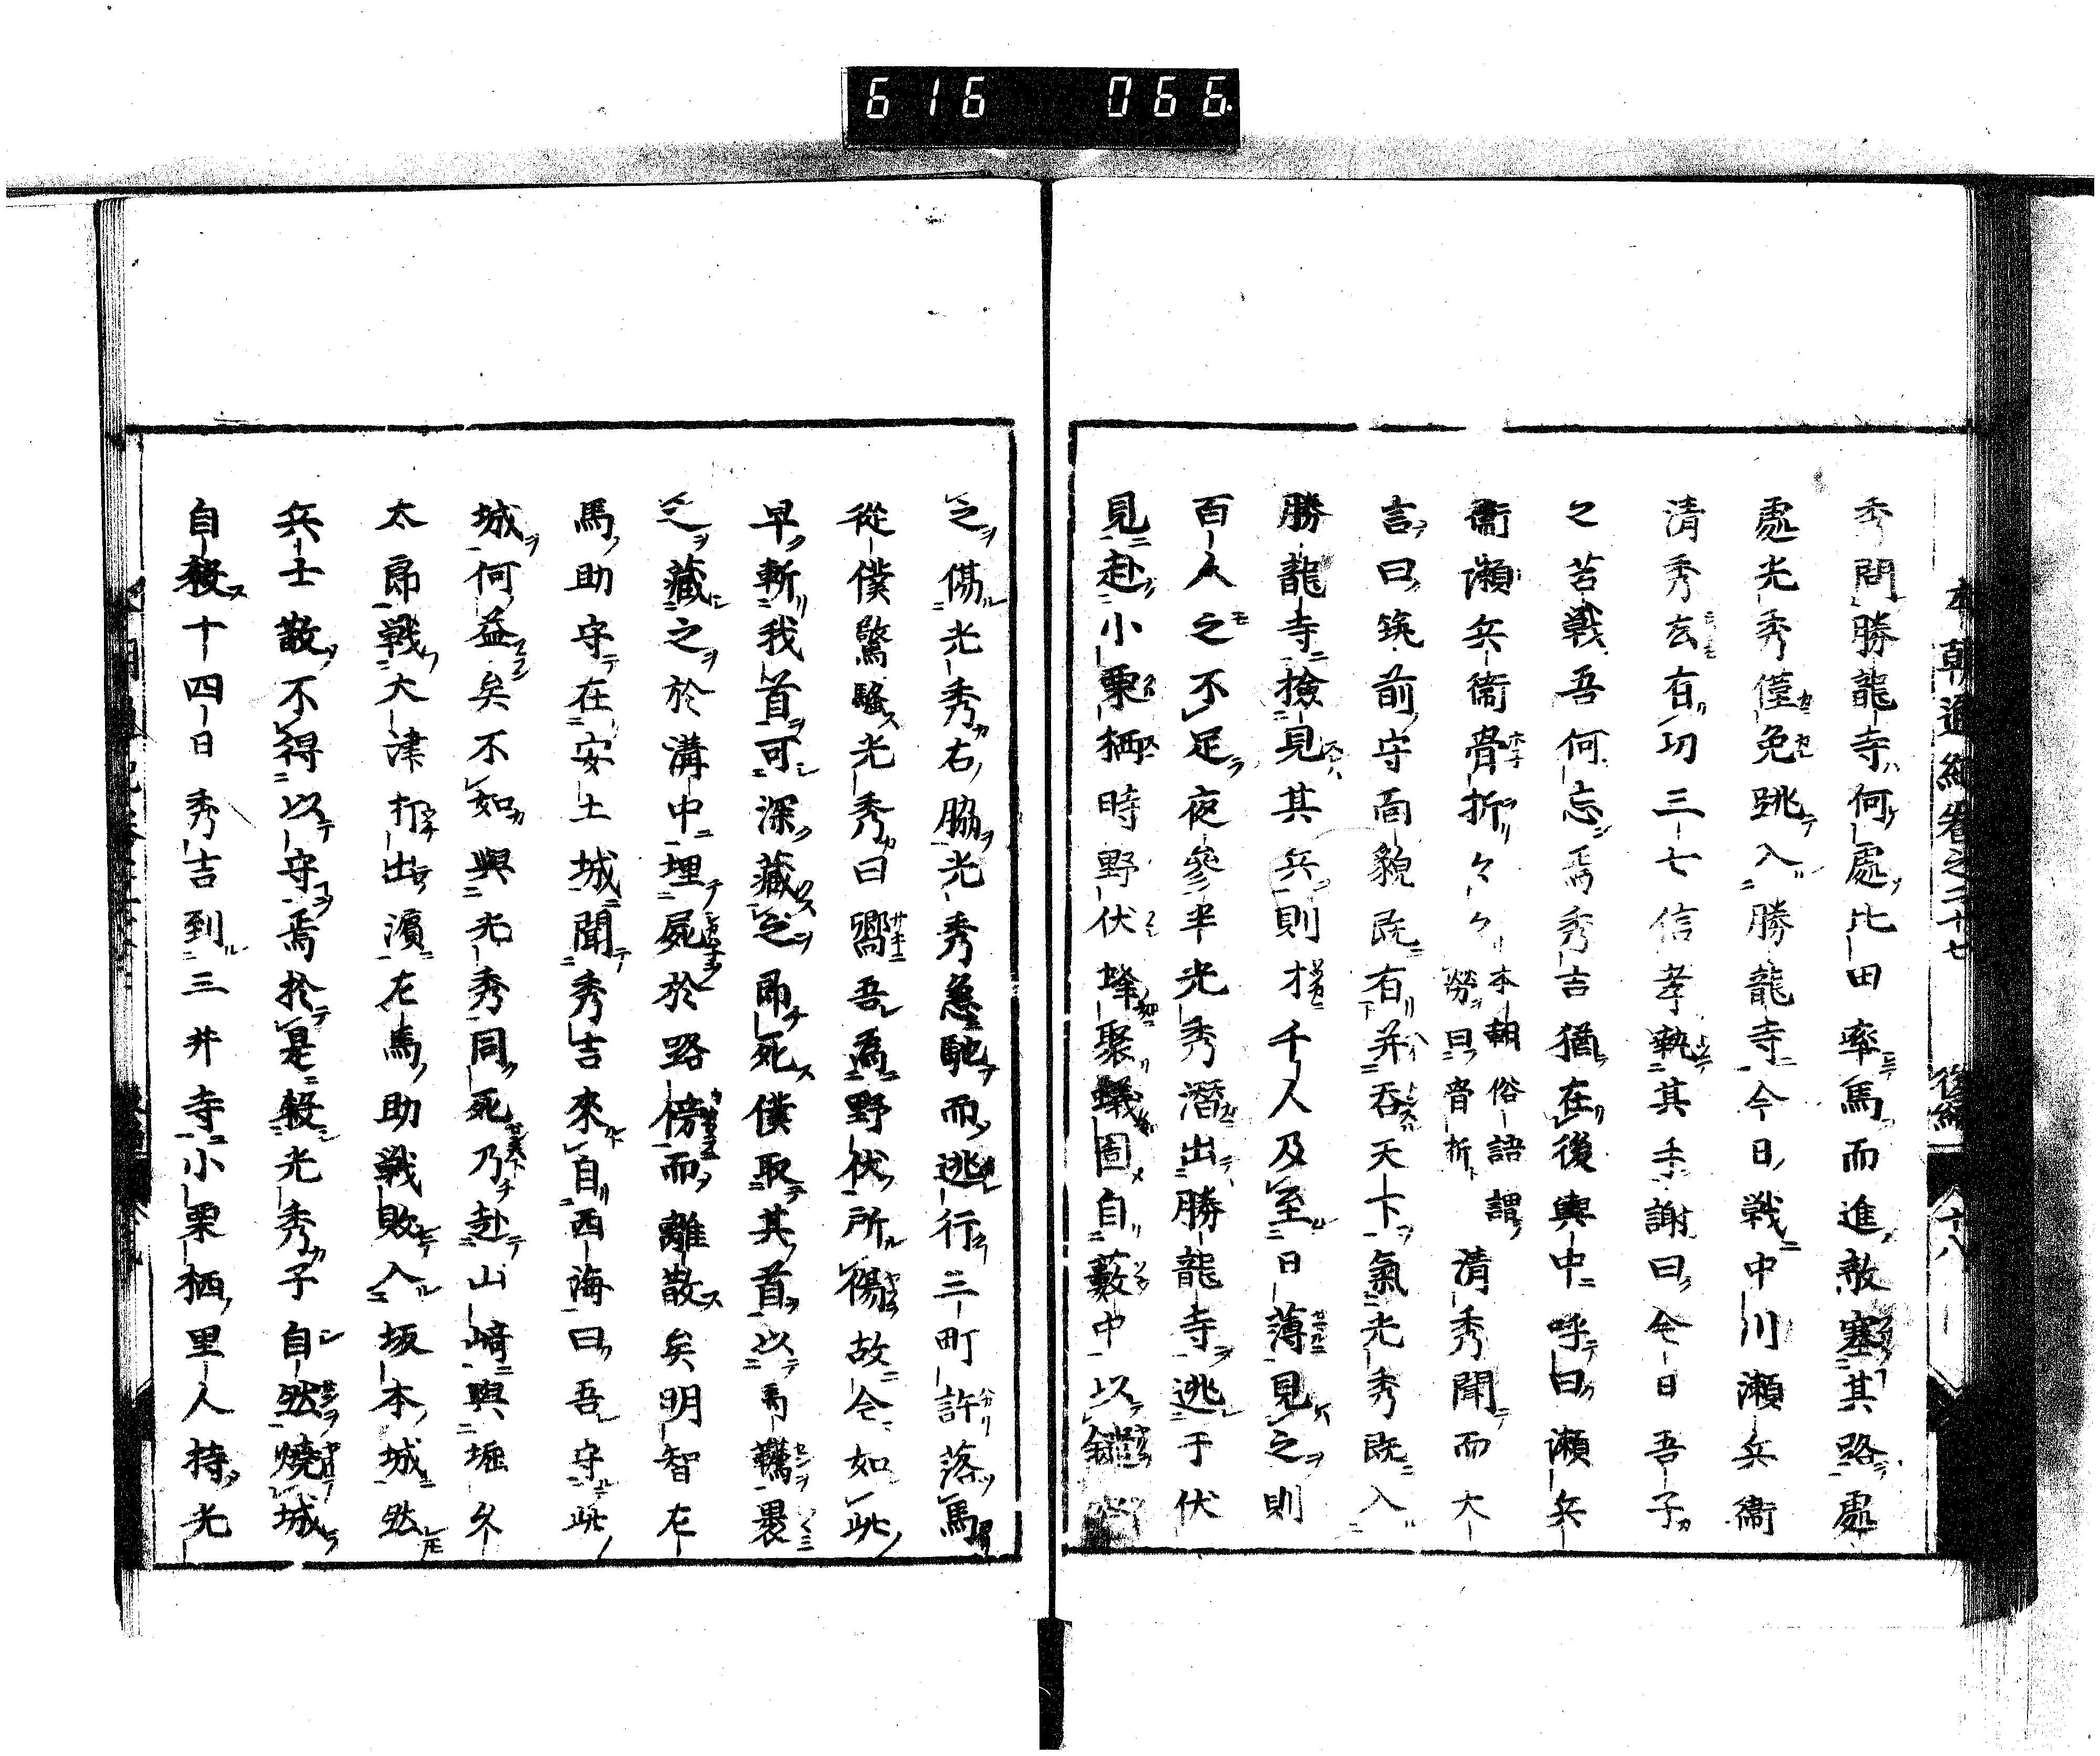 616 066
本朝通紀卷之二十七 後編 十八
秀問勝龍寺何處比田率馬而進敵塞其路處
處光秀僅免跳入勝龍寺今日戰中川瀬兵衞
清秀玄有功三七信孝執其手謝曰今日吾子
之苦戰吾何忘焉秀吉猶在後輿中呼曰瀬兵
衞瀬兵衞骨折々々本朝俗語謂勞曰骨折清秀聞而大
言曰筑前守面貌既有并吞天下氣光秀既入
勝龍寺撿見其兵則才千人及至日薄見之則
百人之不足夜參半光秀潛出勝龍寺逃于伏
見赴小栗栖時野伏蜂聚蟻固自藪中以鎗
之傷光秀右脇光秀急馳而逃行三町許落馬
從僕驚騷光秀曰嚮吾爲野伏所傷故今如此
早斬我首可深藏之即死僕取其首以馬韉裹
之藏之於溝中埋屍於路傍而離散矣明智左
馬助守在安土城聞秀吉來自西海曰吾守此
城何益矣不如與光秀同死乃赴山﨑與堀久
太郎戰大津打出濵左馬助戰敗入坂本城然
兵士散不得以守焉於是殺光秀子自然燒城
自殺十四日秀吉到三井寺小栗栖里人持光